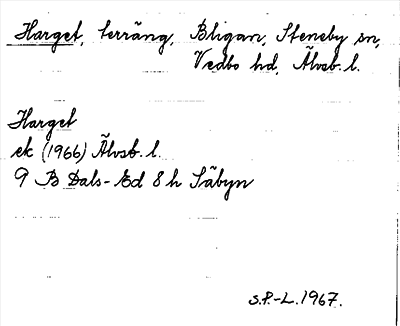 Harget, terräng, Bligan, Steneby sn,
Vedbo hd, Älvsb. l.
Harget
ek (1966) Älvsb. l.
9 B Dals-Ed 8 h Säbyn
S.P.-L. 1967.